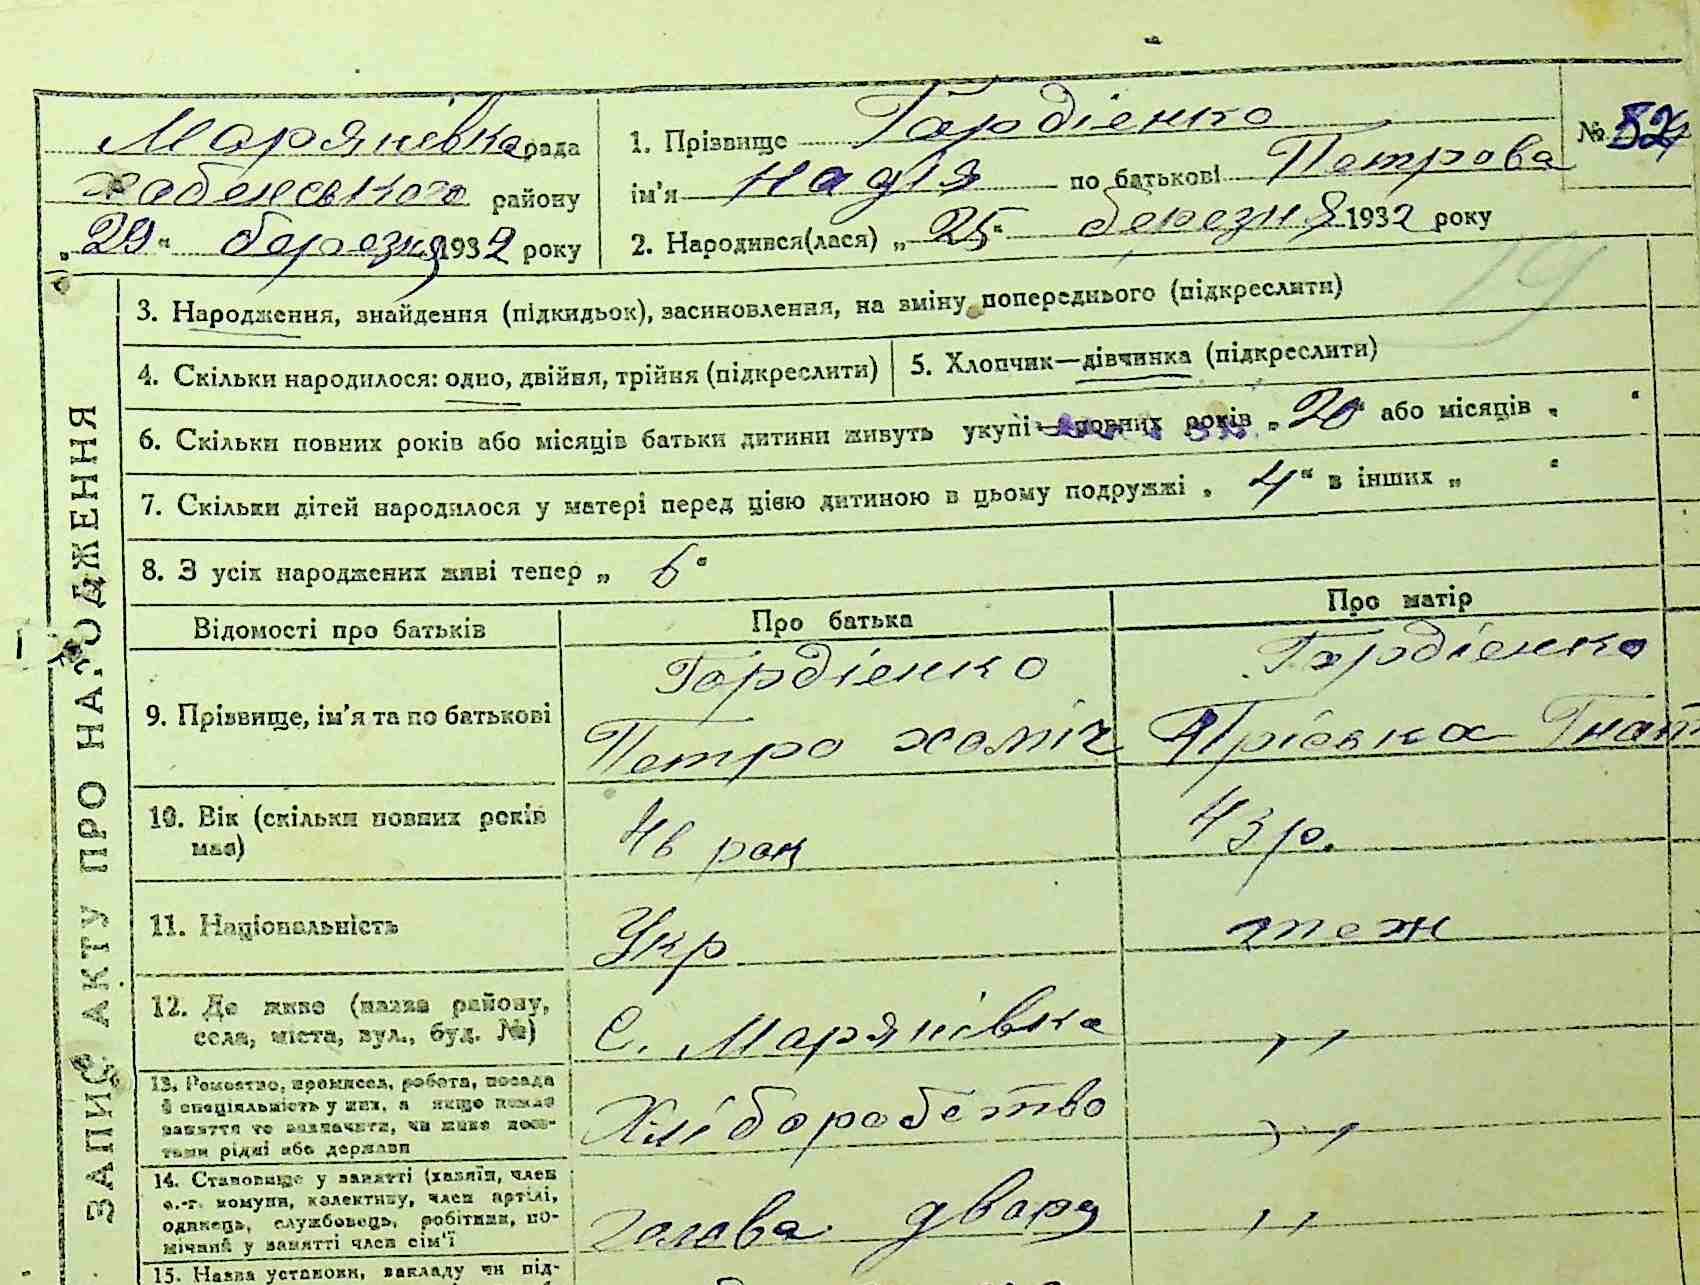 Марянівка рада
Хабенського району
„29“ березня 1932 року
1. Прізвище Гордіенко
ім'я Надія по батькові Петрова
2. Народився(лася) „25“ березня 1932 року
№ 52
19
3. Народження, знайдення (підкидьок), засиновлення, на зміну попереднього (підкреслити)
4. Скільки народилося: одно, двійня, трійня (підкреслити)
5. Хлопчик—дівчинка (підкреслити)
6. Скільки повних років або місяців батьки дитини живуть укупі— повних років „20“ або місяців „ “
7. Скільки дітей народилося у матері перед цією дитиною в цьому подружжі „4“ в інших „ “
8. З усіх народжених живі тепер „6“
ЗАПИС АКТУ ПРО НАРОДЖЕННЯ
Відомості про батьків
Про батька
Про матір
9. Прізвище, ім'я та по батькові
Гордіенко
Петро Хоміч
Гордіенко
Гнат
10. Вік (скільки повних років
має)
46 рок
43 р.
11. Національність
Укр
теж
12. Де живе (назва району,
села, міста, вул., буд. №)
С. Марянівка
„
13. Ремество, промисел, робота, посада
й спеціяльність у них, а якщо немає
заняття то зазначити, чи живе кош-
тами рідні або держави
Хліборобство
„
14. Становище у занятті (хазяїн, член
с.-г. комуни, колективу, член артілі,
одинець, службовець, робітник, по-
мічний у занятті член сім'ї
голова двору
„
15. Назва установи, закладу чи під-